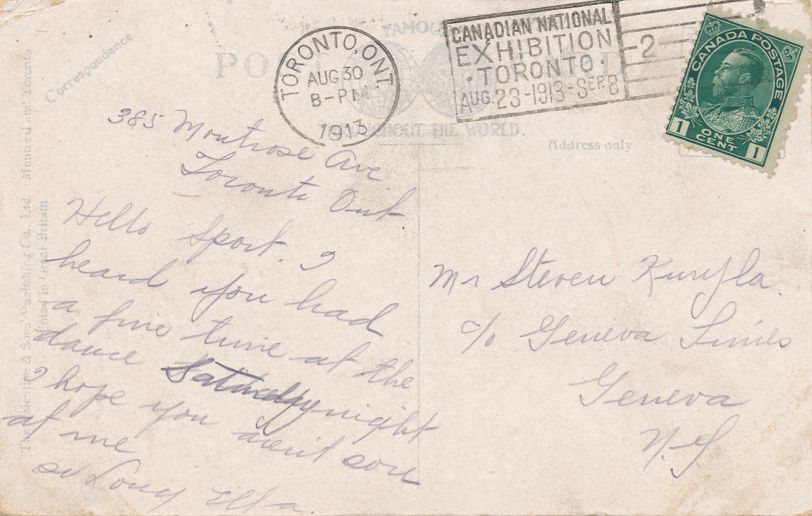 TORONTO, ONT.
AUG 30
8-PM
1913
CANADIAN NATIONAL
EXHIBITION
TORONTO
AUG. 23-1913-SEP. 8
2
CANADA POSTAGE
1 ONE CENT 1
FAMOUS
POST
THROUGHOUT THE WORLD.
Correspondence
Address only
The Valentine & Sons Publishing Co., Ltd., Montreal and Toronto
Printed in Great Britain
385 Montrose Ave
Toronto Ont
Hello Sport. I
heard you had
a fine time at the
dance Saturday night
I hope you arent sore
at me
so Long Ella.
Mr Steven
c/o Geneva
Geneva
N.Y.